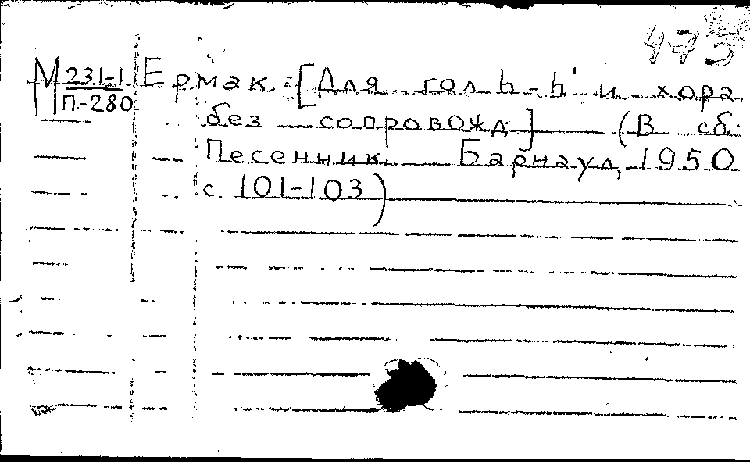 473
М 231-1 Ермак. [Для гол h-h' и хора
П.-280 без сопровожд] (В сб.
Песенник. Барнаул, 1950
с. 101-103)